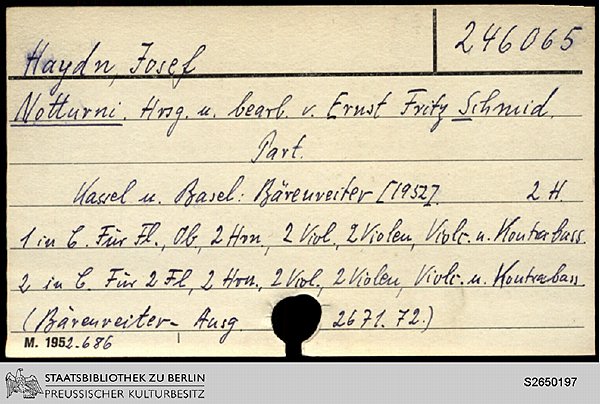 246065
Haydn, Josef
Notturni. Hrsg. u. bearb. v. Ernst Fritz Schmid.
Part.
Kassel u. Basel: Bärenreiter [1952]. 2 H.
1 in C. Für Fl., Ob, 2 Hrn, 2 Viol., 2 Violen, Violc. u. Kontrabass.
2 in C. Für 2 Fl, 2 Hrn., 2 Viol., 2 Violen, Violc. u. Kontrabass.
(Bärenreiter-Ausg. 2671.72.)
M. 1952.686
STAATSBIBLIOTHEK ZU BERLIN
PREUSSISCHER KULTURBESITZ
S2650197